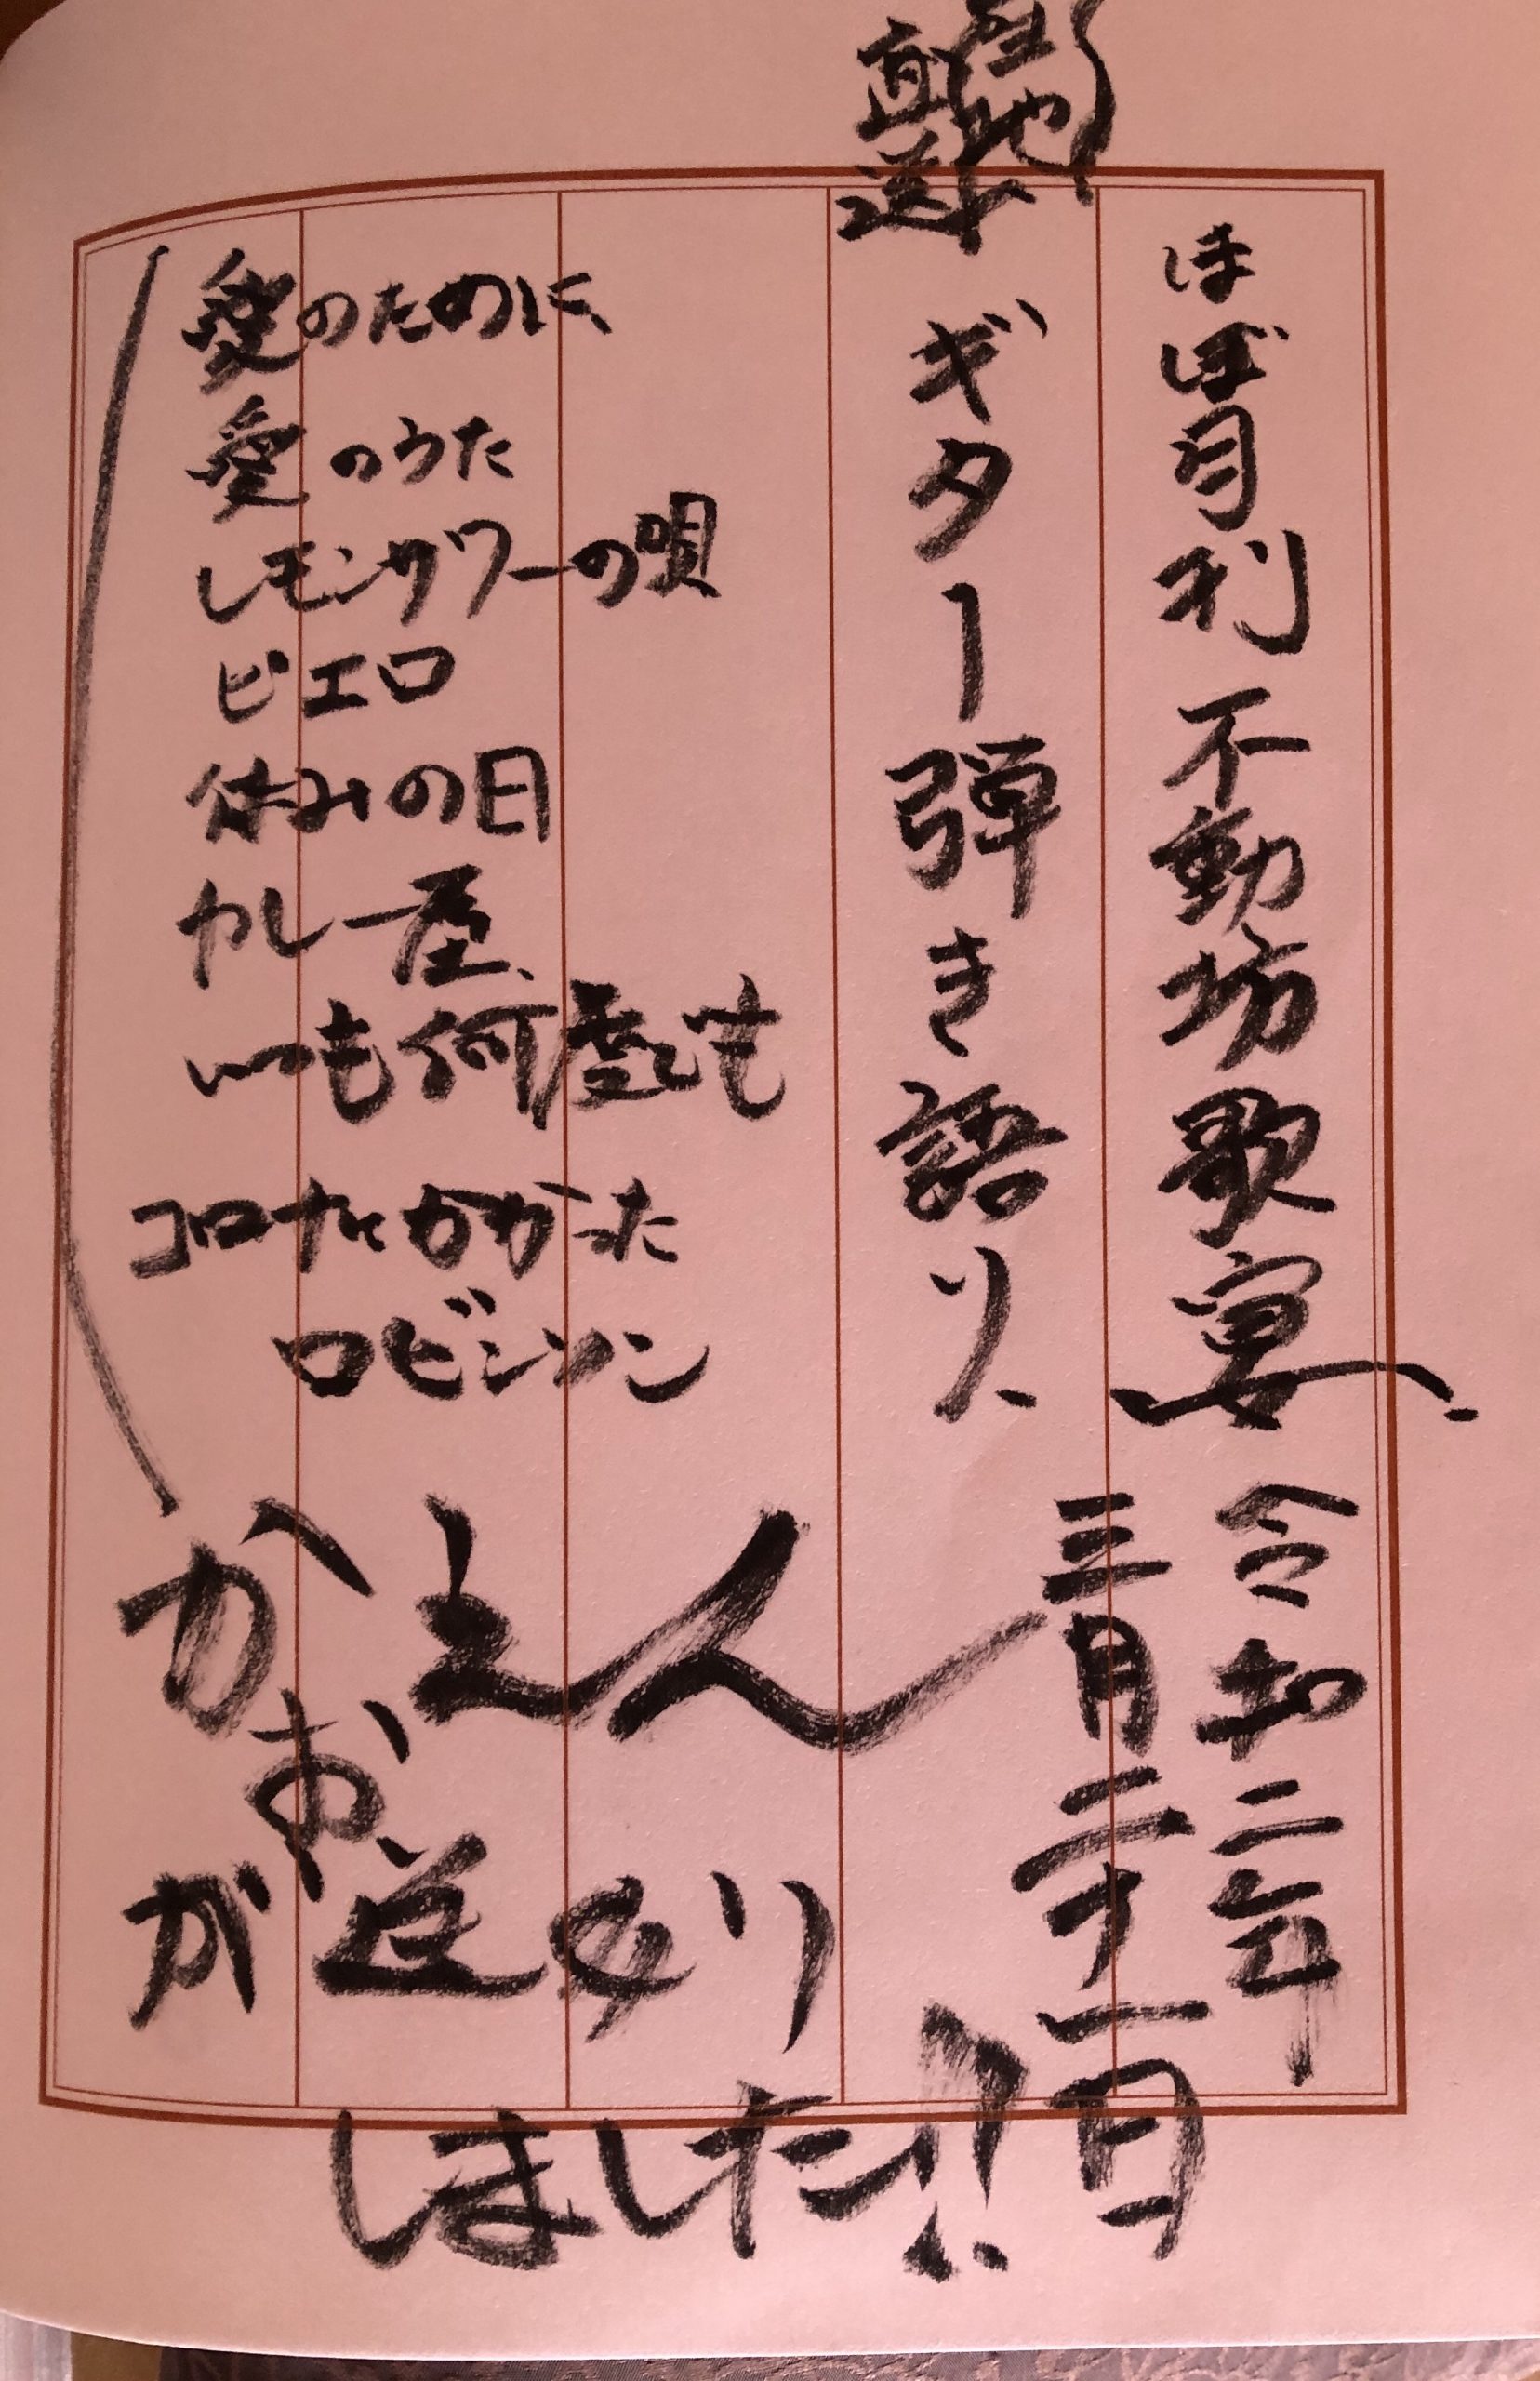 ほぼ月刊 不動坊歌宴、
令和二年
三月二十一日
産地
直送
ギター弾き語り、
愛のために、
愛のうた
レモンサワーの唄
ピエロ
休みの日
カレー屋、
いつも何度でも
コロナにかかった
ロビンソン
かえん
がお送り
しました!!